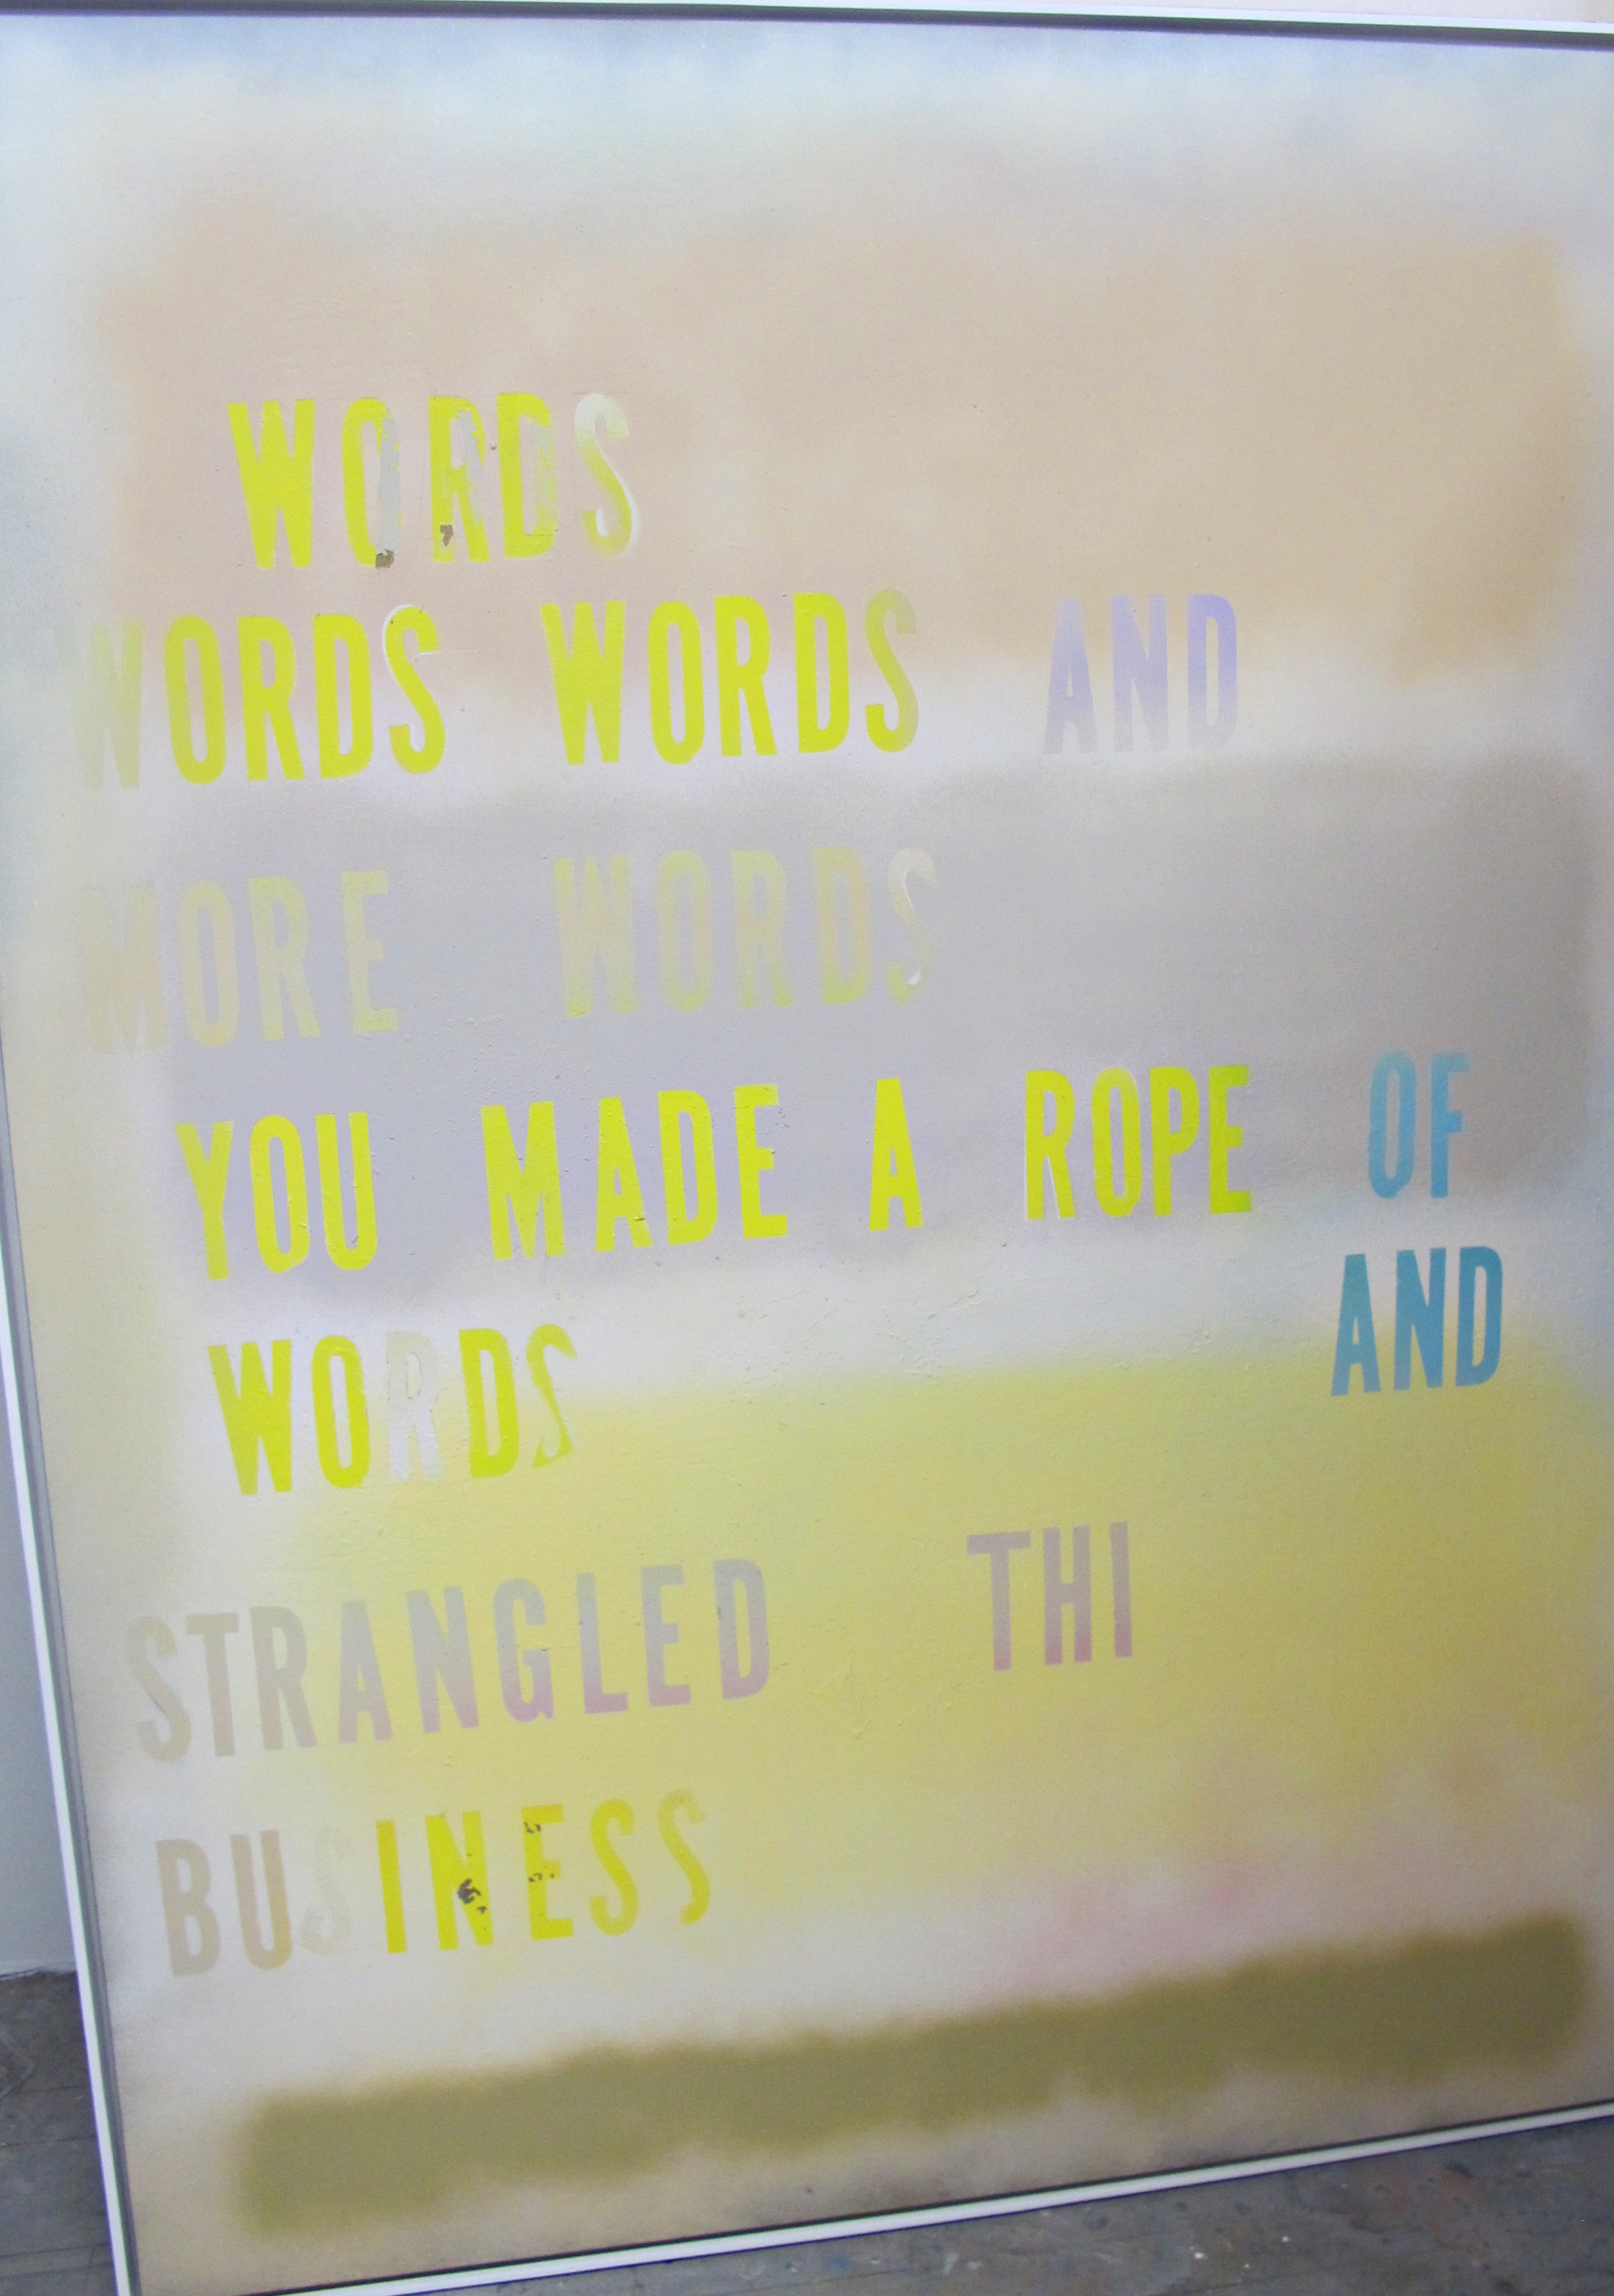 WORDS
WORDS WORDS AND
MORE WORDS
YOU MADE A ROPE OF
WORDS AND
STRANGLED THI
BUSINESS